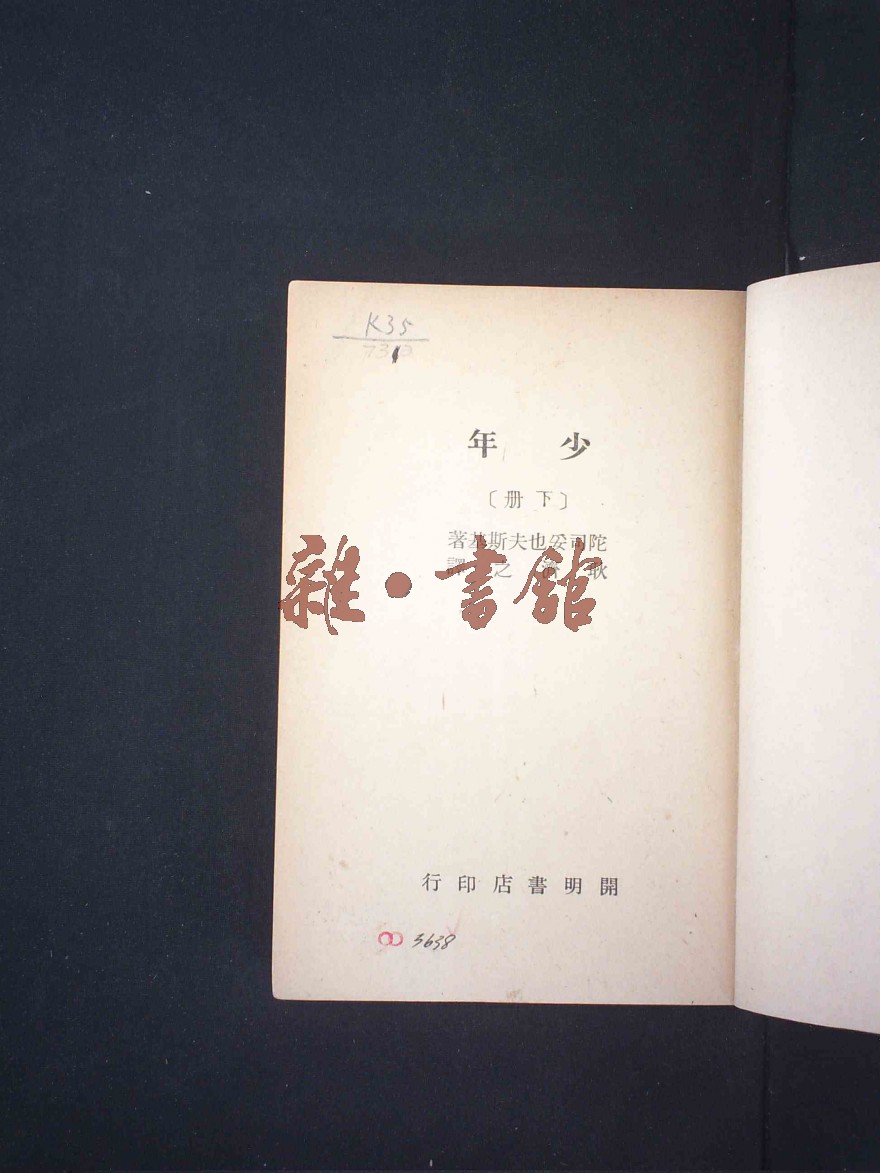 K35
少年
〔下册〕
陀司妥也夫斯基著
耿濟之譯
雜·書館
開明書店印行
3638